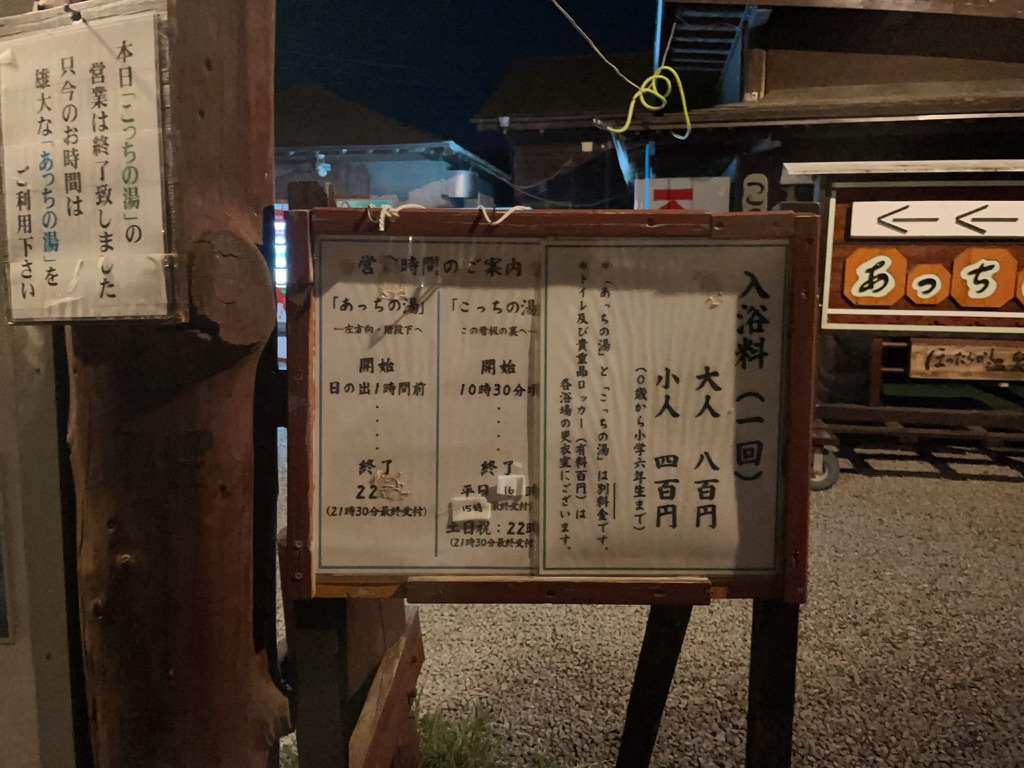 本日「こっちの湯」の
営業は終了致しました
只今のお時間は
雄大な「あっちの湯」を
ご利用下さい
営業時間のご案内
「あっちの湯」
←左方向・階段下へ
開始
日の出1時間前
終了
22
(21時30分最終受付)
「こっちの湯
この看板の裏へ→
開始
10時30分
終了
平日 16時
15時 最終受付)
土日祝：22時
(21時30分最終受付
入浴料（一回）
大人 八百円
小人 四百円
(0歳から小学六年生まで)
＊「あっちの湯」と「こっちの湯」は別料金です。
＊トイレ及び貴重品ロッカー（有料百円）は
各浴場の更衣室にございます。
こ
← ←
あっち
ほったらかし温泉